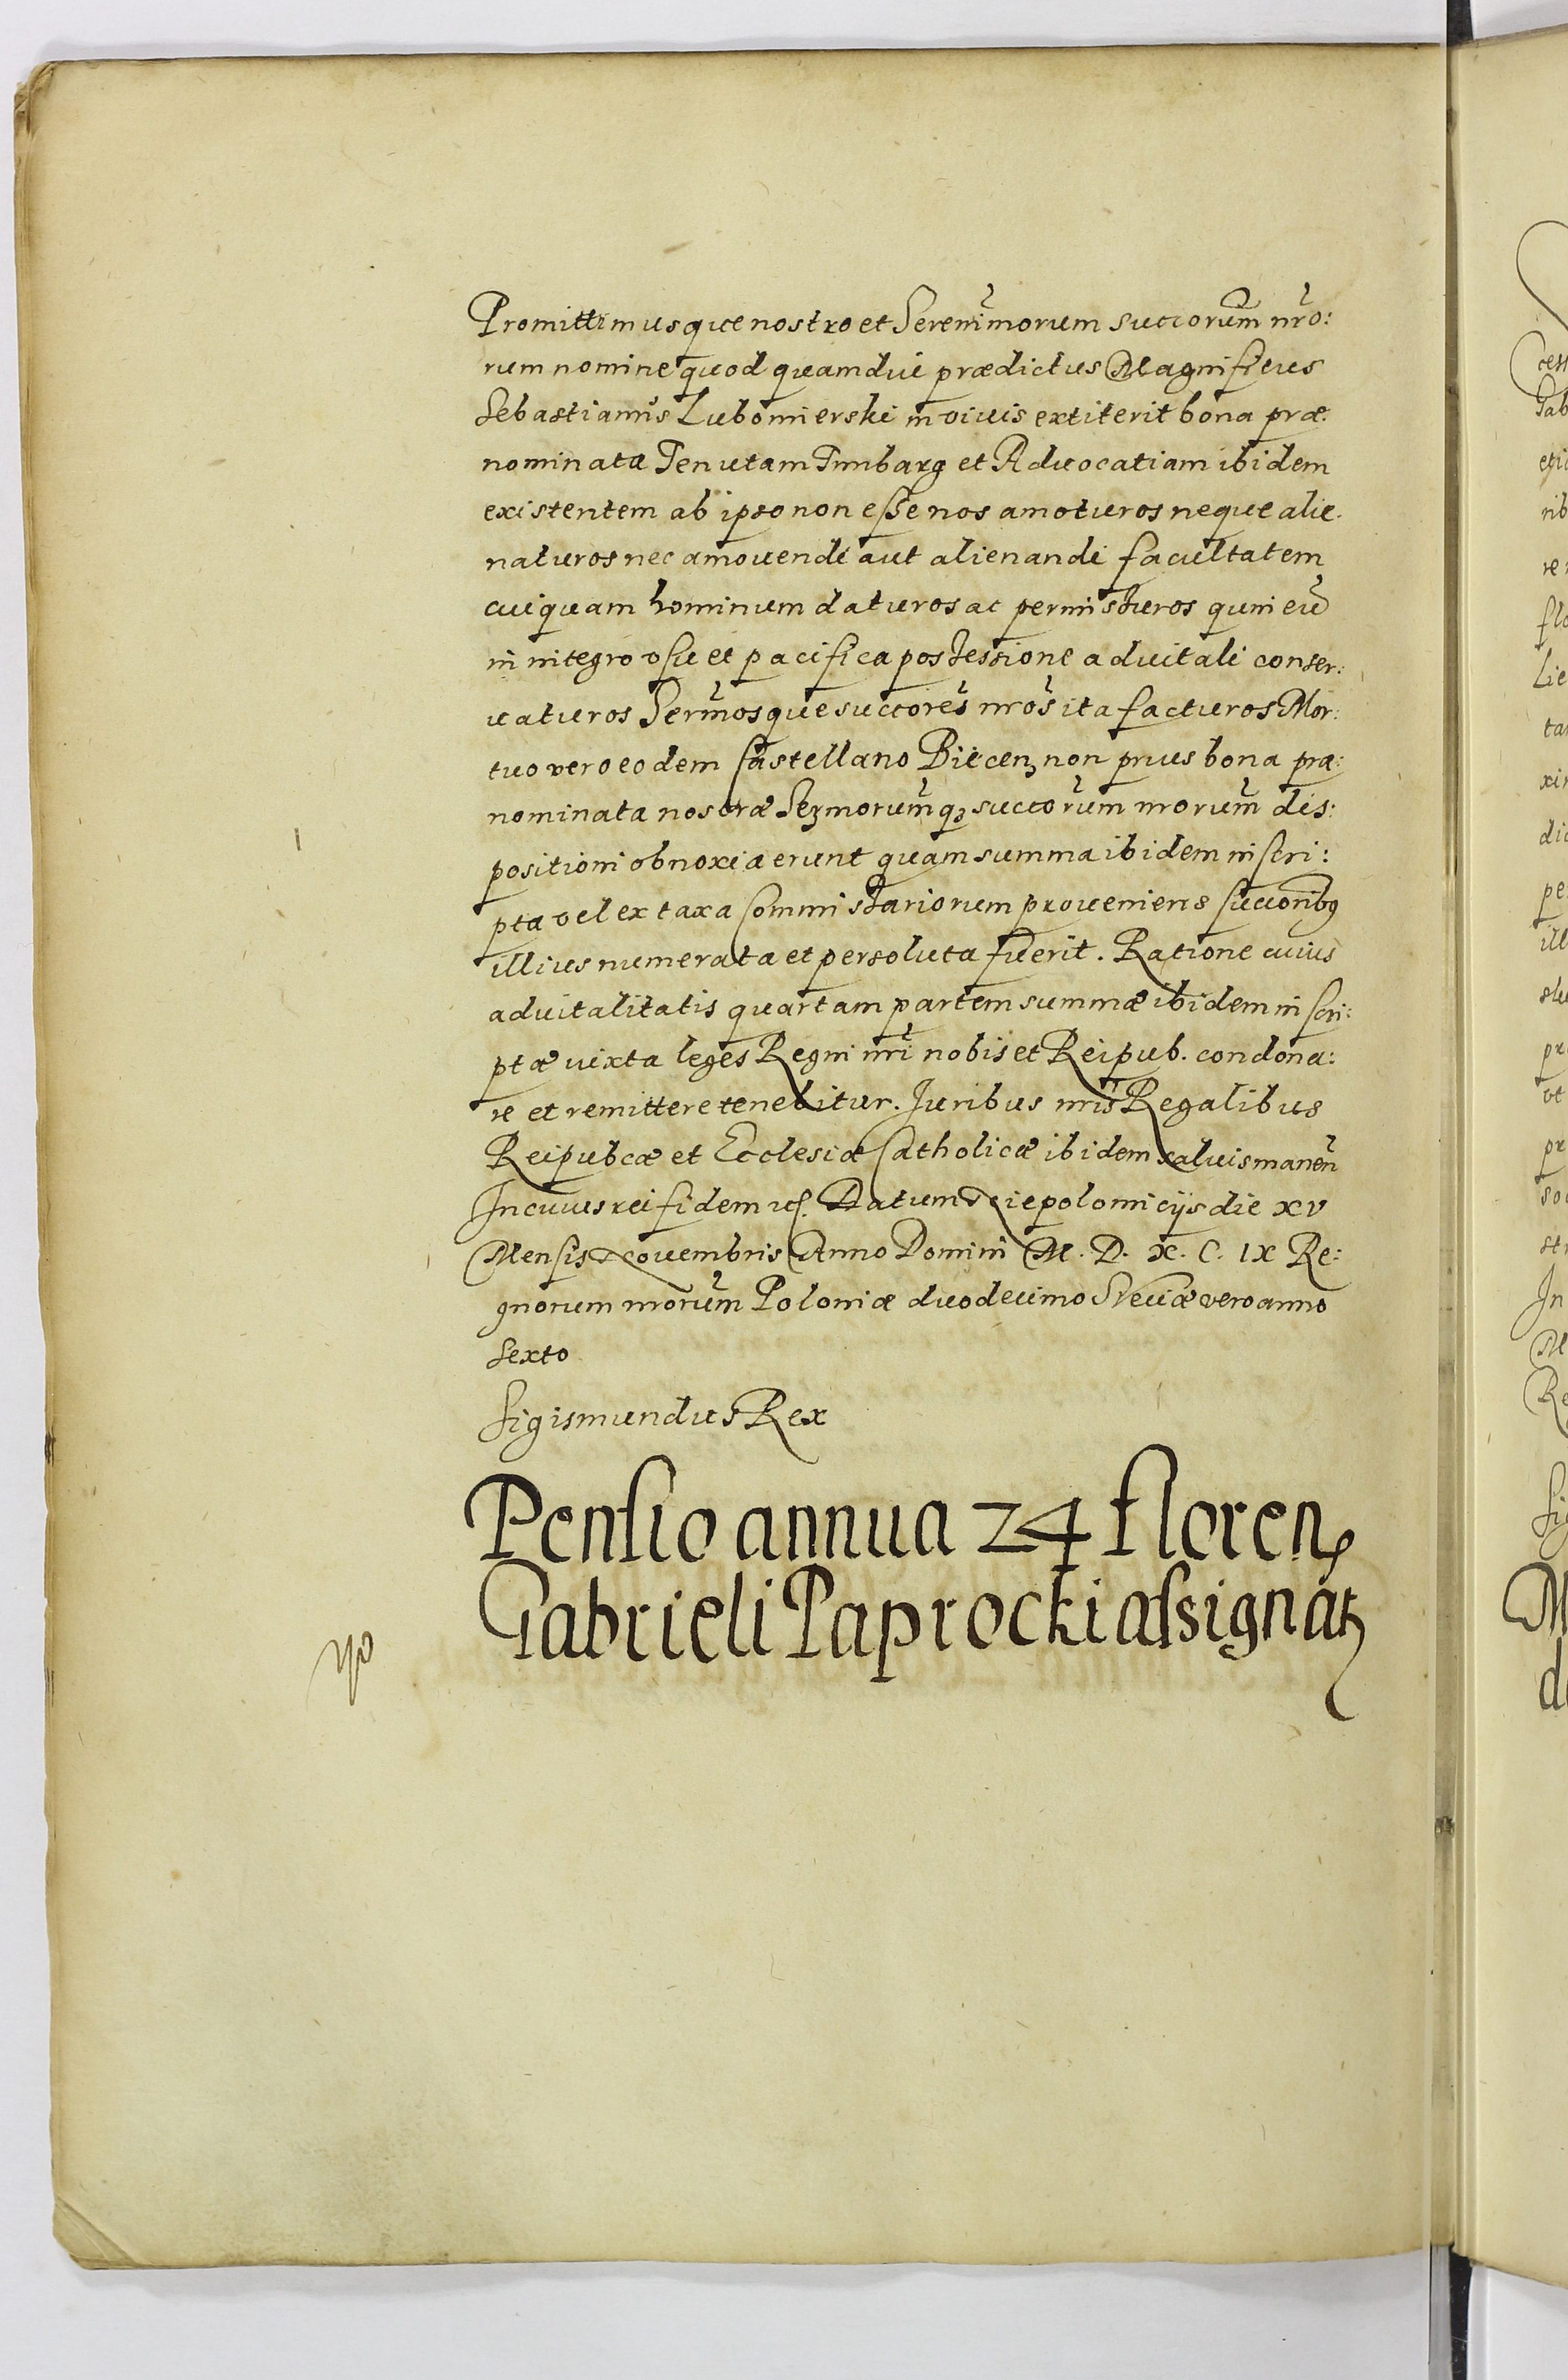 Promittimusque nostro et Serenimorum succorum nro:
rum nomine quod quamdui prædictus Magnificus
Sebastianus Lubomierski in viuis extiterit bona præ:
nominata Tenutam Timbarg et Aduocatiam ibidem
existentem ab ipso non esse nos amoturos neque alie:
naturos nec amouendi aut alienandi facultatem
cuiquam hominum daturos ac permissuros quin eu
in integro vsu et pacifica possessione aduitali conser:
uaturos Sermosque succores nros ita facturos Mor:
tuo vero eodem Castellano Biecen non prius bona præ:
nominata nostræ Sermorumq succorum nrorum dis:
positioni obnoxia erunt quam summa ibidem inscri:
pta vel ex taxa Commissariorum proueniens succoribus
illius numerata et persoluta fuerit. Ratione cuius
aduitalitatis quartam partem summæ ibidem inscri:
ptæ iuxta leges Regni nri nobis et Reipub. condona:
re et remittere tenebitur. Juribus nris Regalibus
Reipubcæ et Ecclesiæ Catholicæ ibidem saluis manen
In cuius rei fidem etc. Datum Niepolomiciis die XV
Mensis Nouembris Anno Domini M. D. X. C. IX Re:
gnorum nrorum Poloniæ duodecimo Sueciæ vero anno
sexto
Sigismundus Rex
Pensio annua 24 floren
Gabrieli Paprocki assignat